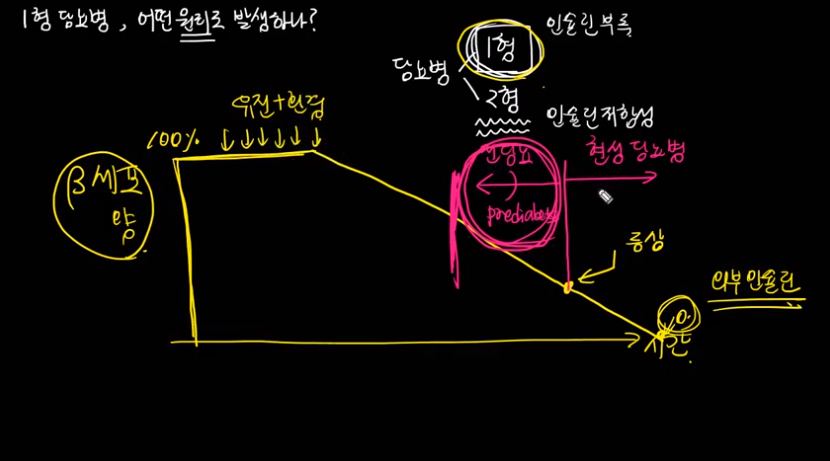 1형 당뇨병, 어떤 원리로 발생하나?
1형
인슐린 부족
당뇨병
2형
인슐린저항성
유전+환경
100%
β세포
양
전당뇨
현성 당뇨병
prediabetes
증상
외부인슐린
0.
시간